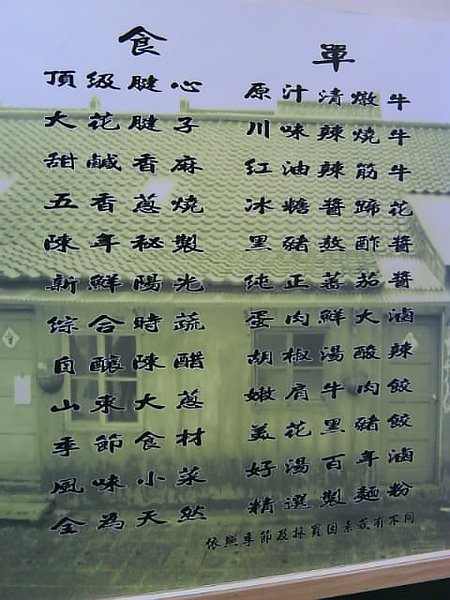 食單
頂級腱心 原汁清燉牛
大花腱子 川味辣燒牛
甜鹹香麻 紅油辣筋牛
五香蔥燒 冰糖醬蹄花
陳年秘製 黑豬熬酢醬
新鮮陽光 純正蕃茄醬
綜合時蔬 蛋肉鮮大滷
自釀陳醋 胡椒湯酸辣
山東大蔥 嫩肩牛肉餃
季節食材 美花黑豬餃
風味小菜 好湯百年滷
全為天然 精選製麵粉
依照季節及採買因素或有不同